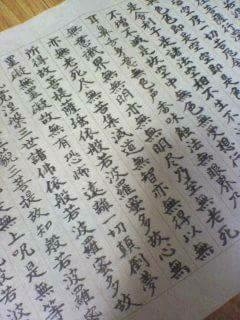 切苦厄
色即是空空即是
是舍利子是諸法空相不生不
不増不減是故空中無色無受想行識無眼
耳鼻舌身意無色聲香味觸法無眼界乃
無意識界無無明亦無無明盡乃至無老死
亦無老死盡無苦集滅道無智亦無得以無
所得故菩提薩埵依般若波羅蜜多故心無
罣礙無罣礙故無有恐怖遠離一切顛倒夢
涅槃三世諸佛依般若波羅蜜多故
三菩提故知般若波羅蜜
上呪是無等